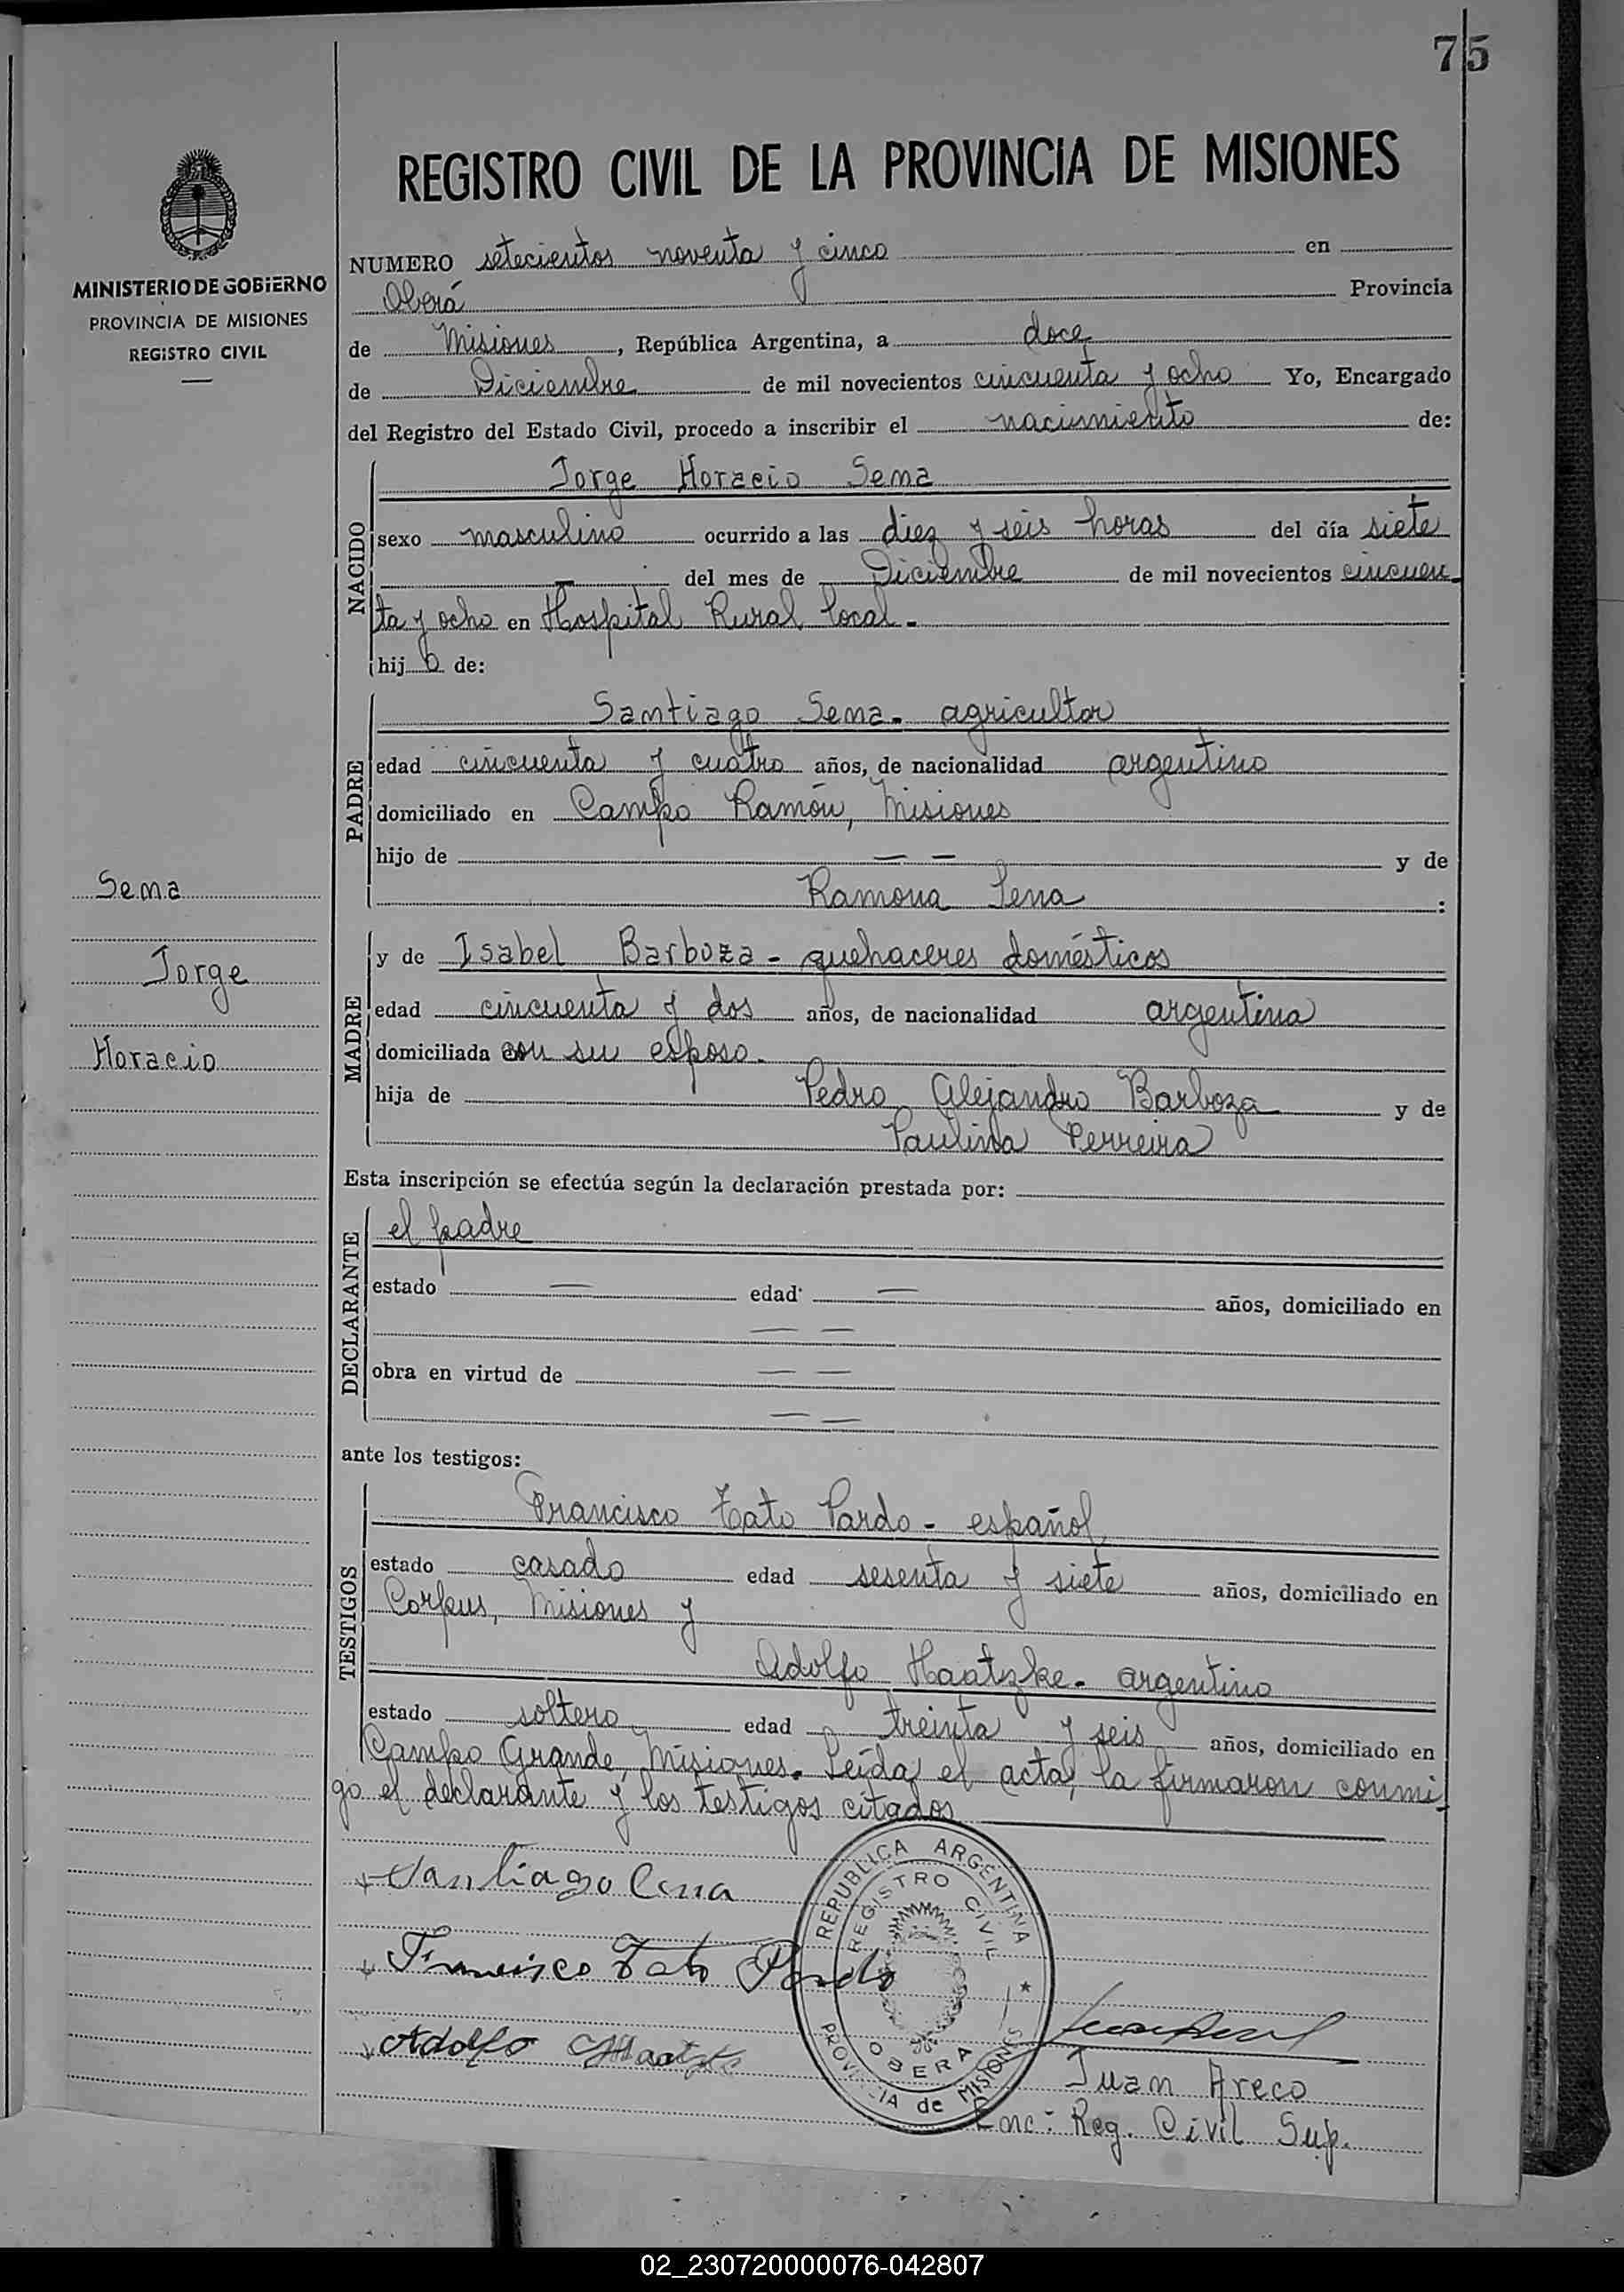 75
REGISTRO CIVIL DE LA PROVINCIA DE MISIONES
MINISTERIO DE GOBIERNO
PROVINCIA DE MISIONES
REGISTRO CIVIL
NUMERO setecientos noventa y cinco en
Oberá Provincia
de Misiones, República Argentina, a doce
de Diciembre de mil novecientos cincuenta y ocho Yo, Encargado
del Registro del Estado Civil, procedo a inscribir el nacimiento de:
NACIDO
Jorge Horacio Sena
sexo masculino ocurrido a las diez y seis horas del día siete
— del mes de Diciembre de mil novecientos cincuen-
ta y ocho en Hospital Rural local.-
hijo de:
PADRE
Santiago Sena- agricultor
edad cincuenta y cuatro años, de nacionalidad argentino
domiciliado en Campo Ramón, Misiones
hijo de — — y de
Ramona Sena :
Sena
Jorge
Horacio
MADRE
y de Isabel Barboza - quehaceres domésticos
edad cincuenta y dos años, de nacionalidad argentina
domiciliada con su esposo.
hija de Pedro Alejandro Barboza y de
Paulina Ferreira
Esta inscripción se efectúa según la declaración prestada por:
DECLARANTE
el padre
estado — edad — años, domiciliado en
— —
obra en virtud de — —
— —
ante los testigos:
TESTIGOS
Francisco Tato Pardo - español
estado casado edad sesenta y siete años, domiciliado en
Corpus, Misiones y
Adolfo Haatzke- argentino
estado soltero edad treinta y seis años, domiciliado en
Campo Grande, Misiones. Leída el acta, la firmaron conmi-
go el declarante y los testigos citados
Santiago Cena
Francisco Tato Pardo
Adolfo Haatzke
REPUBLICA ARGENTINA
REGISTRO CIVIL
OBERA
PROVINCIA de MISIONES
Juan Areco
Enc: Reg. Civil Sup.
02_230720000076-042807